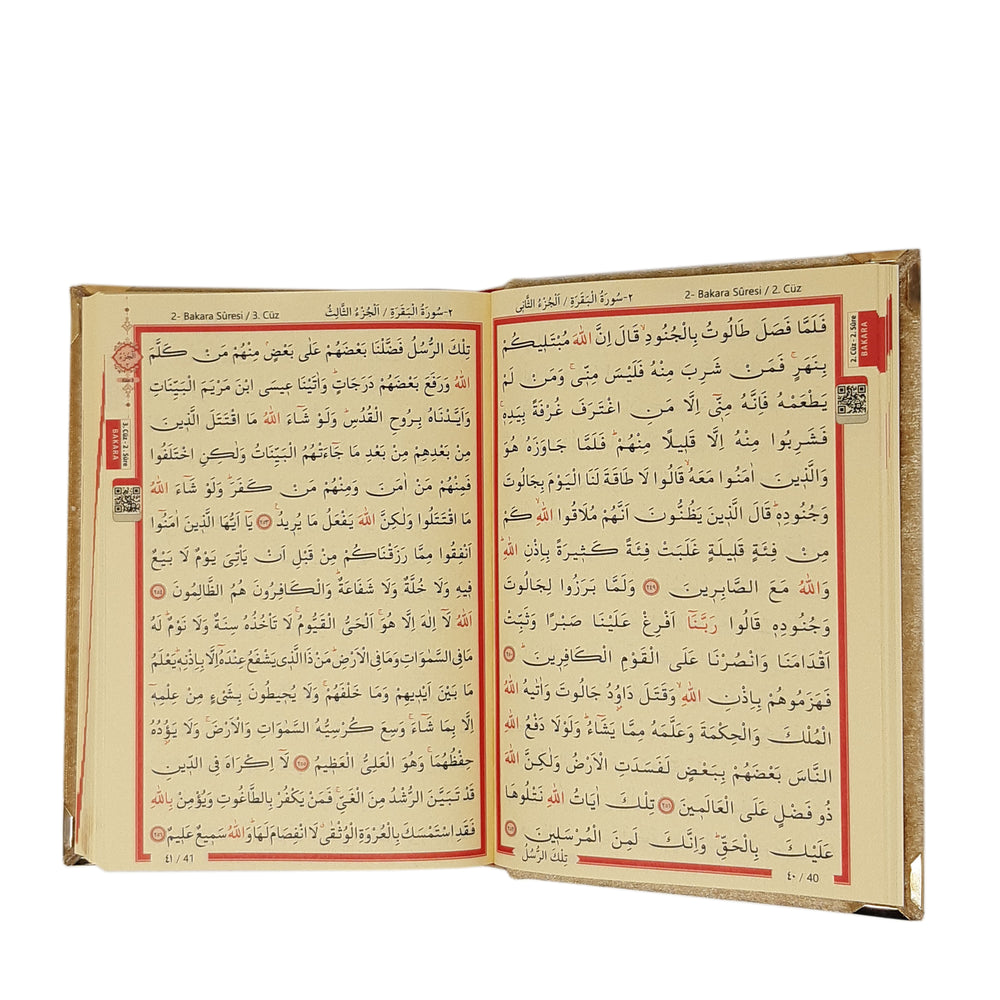 ٢-سُورَةُ الْبَقَرَةِ / اَلْجُزْءُ الثَّانِى
2- Bakara Sûresi / 2. Cüz
2. Cüz - 2. Sûre
BAKARA
فَلَمَّا فَصَلَ طَالُوتُ بِالْجُنُودِۙ قَالَ اِنَّ اللّٰهَ مُبْتَلٖيكُمْ
بِنَهَرٍۚ فَمَنْ شَرِبَ مِنْهُ فَلَيْسَ مِنّٖىۚ وَمَنْ لَمْ
يَطْعَمْهُ فَاِنَّهُ مِنّٖٓى اِلَّا مَنِ اغْتَرَفَ غُرْفَةً بِيَدِهٖۚ
فَشَرِبُوا مِنْهُ اِلَّا قَلٖيلًا مِنْهُمْؕ فَلَمَّا جَاوَزَهُ هُوَ
وَالَّذٖينَ اٰمَنُوا مَعَهُۙ قَالُوا لَا طَاقَةَ لَنَا الْيَوْمَ بِجَالُوتَ
وَجُنُودِهٖؕ قَالَ الَّذٖينَ يَظُنُّونَ اَنَّهُمْ مُلَاقُوا اللّٰهِۙ كَمْ
مِنْ فِئَةٍ قَلٖيلَةٍ غَلَبَتْ فِئَةً كَثٖيرَةً بِاِذْنِ اللّٰهِؕ
وَاللّٰهُ مَعَ الصَّابِرٖينَ ٢٤٩ وَلَمَّا بَرَزُوا لِجَالُوتَ
وَجُنُودِهٖ قَالُوا رَبَّنَٓا اَفْرِغْ عَلَيْنَا صَبْرًا وَثَبِّتْ
اَقْدَامَنَا وَانْصُرْنَا عَلَى الْقَوْمِ الْكَافِرٖينَؕ ٢٥٠
فَهَزَمُوهُمْ بِاِذْنِ اللّٰهِۙ وَقَتَلَ دَاوُ۫دُ جَالُوتَ وَاٰتٰيهُ اللّٰهُ
الْمُلْكَ وَالْحِكْمَةَ وَعَلَّمَهُ مِمَّا يَشَٓاءُؕ وَلَوْلَا دَفْعُ اللّٰهِ
النَّاسَ بَعْضَهُمْ بِبَعْضٍ لَفَسَدَتِ الْاَرْضُ وَلٰكِنَّ اللّٰهَ
ذُو فَضْلٍ عَلَى الْعَالَمٖينَ ٢٥١ تِلْكَ اٰيَاتُ اللّٰهِ نَتْلُوهَا
عَلَيْكَ بِالْحَقِّؕ وَاِنَّكَ لَمِنَ الْمُرْسَلٖينَ ٢٥٢
تِلْكَ الرُّسُلُ
٤٠ / 40
٢-سُورَةُ الْبَقَرَةِ / اَلْجُزْءُ الثَّالِثُ
2- Bakara Sûresi / 3. Cüz
اَلْجُزْءُ
3. Cüz - 2. Sûre
BAKARA
تِلْكَ الرُّسُلُ فَضَّلْنَا بَعْضَهُمْ عَلٰى بَعْضٍۢ مِنْهُمْ مَنْ كَلَّمَ
اللّٰهُ وَرَفَعَ بَعْضَهُمْ دَرَجَاتٍؕ وَاٰتَيْنَا عٖيسَى ابْنَ مَرْيَمَ الْبَيِّنَاتِ
وَاَيَّدْنَاهُ بِرُوحِ الْقُدُسِؕ وَلَوْ شَٓاءَ اللّٰهُ مَا اقْتَتَلَ الَّذٖينَ
مِنْ بَعْدِهِمْ مِنْ بَعْدِ مَا جَٓاءَتْهُمُ الْبَيِّنَاتُ وَلٰكِنِ اخْتَلَفُوا
فَمِنْهُمْ مَنْ اٰمَنَ وَمِنْهُمْ مَنْ كَفَرَؕ وَلَوْ شَٓاءَ اللّٰهُ
مَا اقْتَتَلُوا وَلٰكِنَّ اللّٰهَ يَفْعَلُ مَا يُرٖيدُۚ ٢٥٣ يَٓا اَيُّهَا الَّذٖينَ اٰمَنُٓوا
اَنْفِقُوا مِمَّا رَزَقْنَاكُمْ مِنْ قَبْلِ اَنْ يَاْتِىَ يَوْمٌ لَا بَيْعٌ
فٖيهِ وَلَا خُلَّةٌ وَلَا شَفَاعَةٌؕ وَالْكَافِرُونَ هُمُ الظَّالِمُونَ ٢٥٤
اَللّٰهُ لَٓا اِلٰهَ اِلَّا هُوَۚ اَلْحَىُّ الْقَيُّومُۚ لَا تَاْخُذُهُ سِنَةٌ وَلَا نَوْمٌؕ لَهُ
مَا فِى السَّمٰوَاتِ وَمَا فِى الْاَرْضِؕ مَنْ ذَا الَّذٖى يَشْفَعُ عِنْدَهُٓ اِلَّا بِاِذْنِهٖؕ يَعْلَمُ
مَا بَيْنَ اَيْدٖيهِمْ وَمَا خَلْفَهُمْۚ وَلَا يُحٖيطُونَ بِشَىْءٍ مِنْ عِلْمِهٖٓ
اِلَّا بِمَا شَٓاءَۚ وَسِعَ كُرْسِيُّهُ السَّمٰوَاتِ وَالْاَرْضَۚ وَلَا يَؤُ۫دُهُ
حِفْظُهُمَاۚ وَهُوَ الْعَلِىُّ الْعَظٖيمُ ٢٥٥ لَٓا اِكْرَاهَ فِى الدّٖينِ
قَدْ تَبَيَّنَ الرُّشْدُ مِنَ الْغَىِّۚ فَمَنْ يَكْفُرْ بِالطَّاغُوتِ وَيُؤْمِنْ بِاللّٰهِ
فَقَدِ اسْتَمْسَكَ بِالْعُرْوَةِ الْوُثْقٰىۗ لَا انْفِصَامَ لَهَاؕ وَاللّٰهُ سَمٖيعٌ عَلٖيمٌ ٢٥٦
٤١ / 41